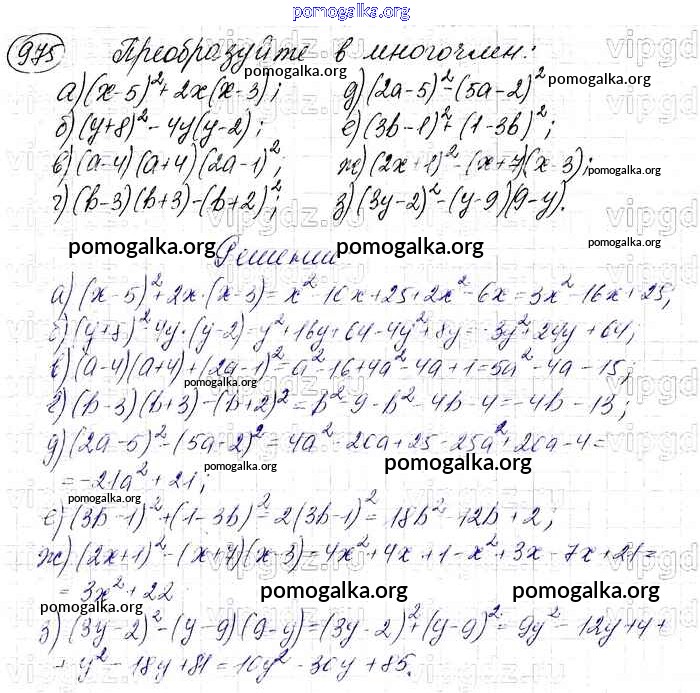 pomogalka.org
975 Преобразуйте в многочлен:
pomogalka.org
а) (x-5)²+2x(x-3); д) (2a-5)²-(5a-2)²
pomogalka.org
б) (y+8)²-4y(y-2); е) (3b-1)²+(1-3b)²;
в) (a-4)(a+4)(2a-1)²; ж) (2x+1)²-(x+7)(x-3);
pomogalka.org
г) (b-3)(b+3)-(b+2)²; з) (3y-2)²-(y-9)(9-y).
pomogalka.org pomogalka.org pomogalka.org
Решении
а) (x-5)²+2x·(x-3)=x²-10x+25+2x²-6x=3x²-16x+25;
б) (y+8)²-4y·(y-2)=y²+16y+64-4y²+8y=-3y²+24y+64;
в) (a-4)(a+4)+(2a-1)²=a²-16+4a²-4a+1=5a²-4a-15;
pomogalka.org
г) (b-3)(b+3)-(b+2)²=b²-9-b²-4b-4=-4b-13;
pomogalka.org
д) (2a-5)²-(5a-2)²=4a²-20a+25-25a²+20a-4=
pomogalka.org pomogalka.org
=-21a²+21;
pomogalka.org
е) (3b-1)²+(1-3b)²=2(3b-1)²=18b²-12b+2;
ж) (2x+1)²-(x+7)(x-3)=4x²+4x+1-x²+3x-7x+21=
=3x²+22
pomogalka.org pomogalka.org
pomogalka.org
з) (3y-2)²-(y-9)(9-y)=(3y-2)²+(y-9)²=9y²-12y+4+
+y²-18y+81=10y²-30y+85.